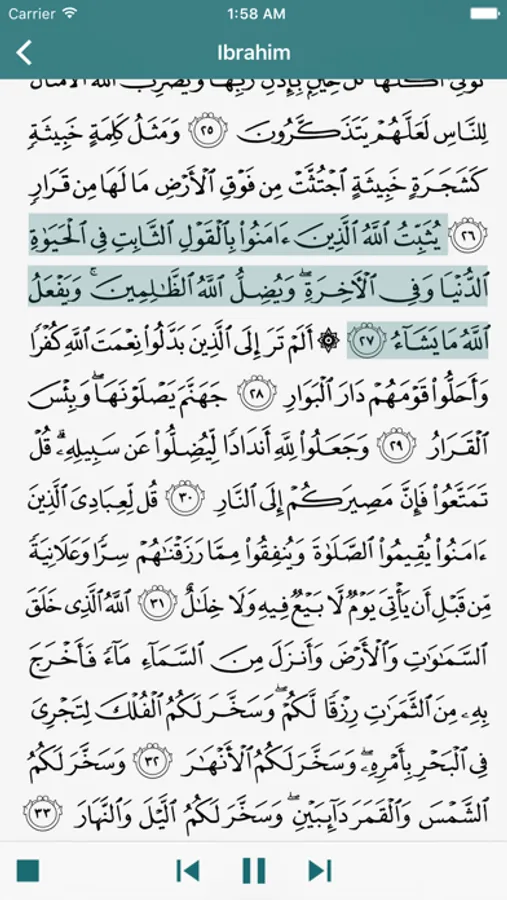 Carrier 1:58 AM
Ibrahim
تُؤْتِىٓ أُكُلَهَا كُلَّ حِينٍۭ بِإِذْنِ رَبِّهَا ۗ وَيَضْرِبُ ٱللَّهُ ٱلْأَمْثَالَ
لِلنَّاسِ لَعَلَّهُمْ يَتَذَكَّرُونَ ٢٥ وَمَثَلُ كَلِمَةٍ خَبِيثَةٍ
كَشَجَرَةٍ خَبِيثَةٍ ٱجْتُثَّتْ مِن فَوْقِ ٱلْأَرْضِ مَا لَهَا مِن قَرَارٍ
٢٦ يُثَبِّتُ ٱللَّهُ ٱلَّذِينَ ءَامَنُوا۟ بِٱلْقَوْلِ ٱلثَّابِتِ فِى ٱلْحَيَوٰةِ
ٱلدُّنْيَا وَفِى ٱلْـَٔاخِرَةِ ۖ وَيُضِلُّ ٱللَّهُ ٱلظَّٰلِمِينَ ۚ وَيَفْعَلُ
ٱللَّهُ مَا يَشَآءُ ٢٧ ۞ أَلَمْ تَرَ إِلَى ٱلَّذِينَ بَدَّلُوا۟ نِعْمَتَ ٱللَّهِ كُفْرًا
وَأَحَلُّوا۟ قَوْمَهُمْ دَارَ ٱلْبَوَارِ ٢٨ جَهَنَّمَ يَصْلَوْنَهَا ۖ وَبِئْسَ
ٱلْقَرَارُ ٢٩ وَجَعَلُوا۟ لِلَّهِ أَندَادًا لِّيُضِلُّوا۟ عَن سَبِيلِهِۦ ۗ قُلْ
تَمَتَّعُوا۟ فَإِنَّ مَصِيرَكُمْ إِلَى ٱلنَّارِ ٣٠ قُل لِّعِبَادِىَ ٱلَّذِينَ
ءَامَنُوا۟ يُقِيمُوا۟ ٱلصَّلَوٰةَ وَيُنفِقُوا۟ مِمَّا رَزَقْنَٰهُمْ سِرًّا وَعَلَانِيَةً
مِّن قَبْلِ أَن يَأْتِىَ يَوْمٌ لَّا بَيْعٌ فِيهِ وَلَا خِلَٰلٌ ٣١ ٱللَّهُ ٱلَّذِى خَلَقَ
ٱلسَّمَٰوَٰتِ وَٱلْأَرْضَ وَأَنزَلَ مِنَ ٱلسَّمَآءِ مَآءً فَأَخْرَجَ
بِهِۦ مِنَ ٱلثَّمَرَٰتِ رِزْقًا لَّكُمْ ۖ وَسَخَّرَ لَكُمُ ٱلْفُلْكَ لِتَجْرِىَ
فِى ٱلْبَحْرِ بِأَمْرِهِۦ ۖ وَسَخَّرَ لَكُمُ ٱلْأَنْهَٰرَ ٣٢ وَسَخَّرَ لَكُمُ
ٱلشَّمْسَ وَٱلْقَمَرَ دَآئِبَيْنِ ۖ وَسَخَّرَ لَكُمُ ٱلَّيْلَ وَٱلنَّهَارَ ٣٣